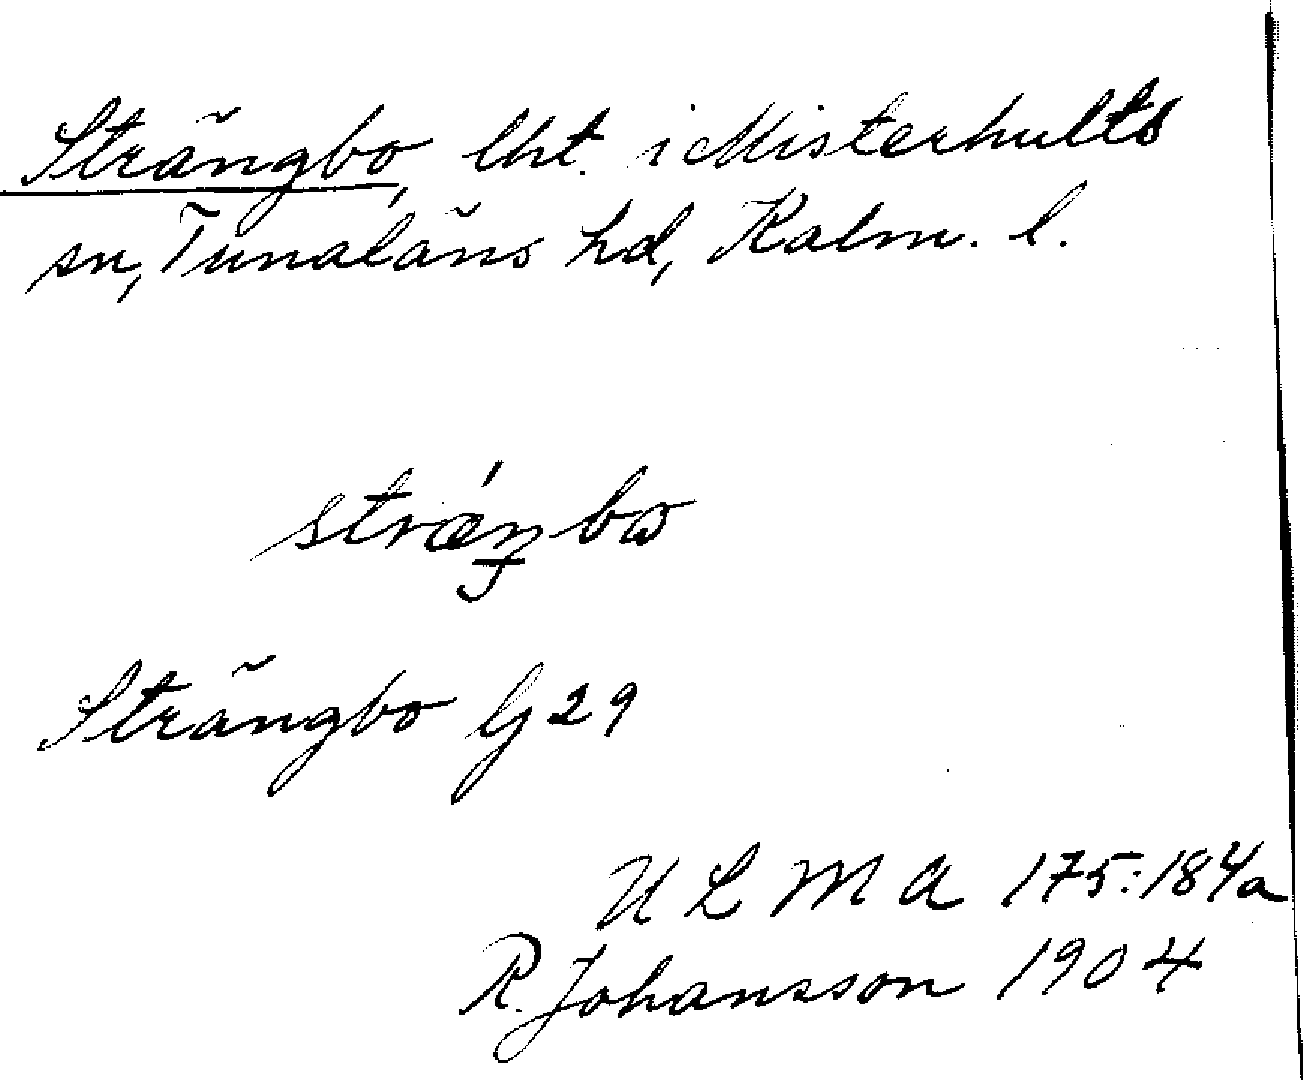 Strängbo, lht. i Misterhults
sn, Tunaläns hd, Kalm. l.
stræ´ŋbω
Strängbo G 29
ULMA 175:184a
R. Johansson 1904